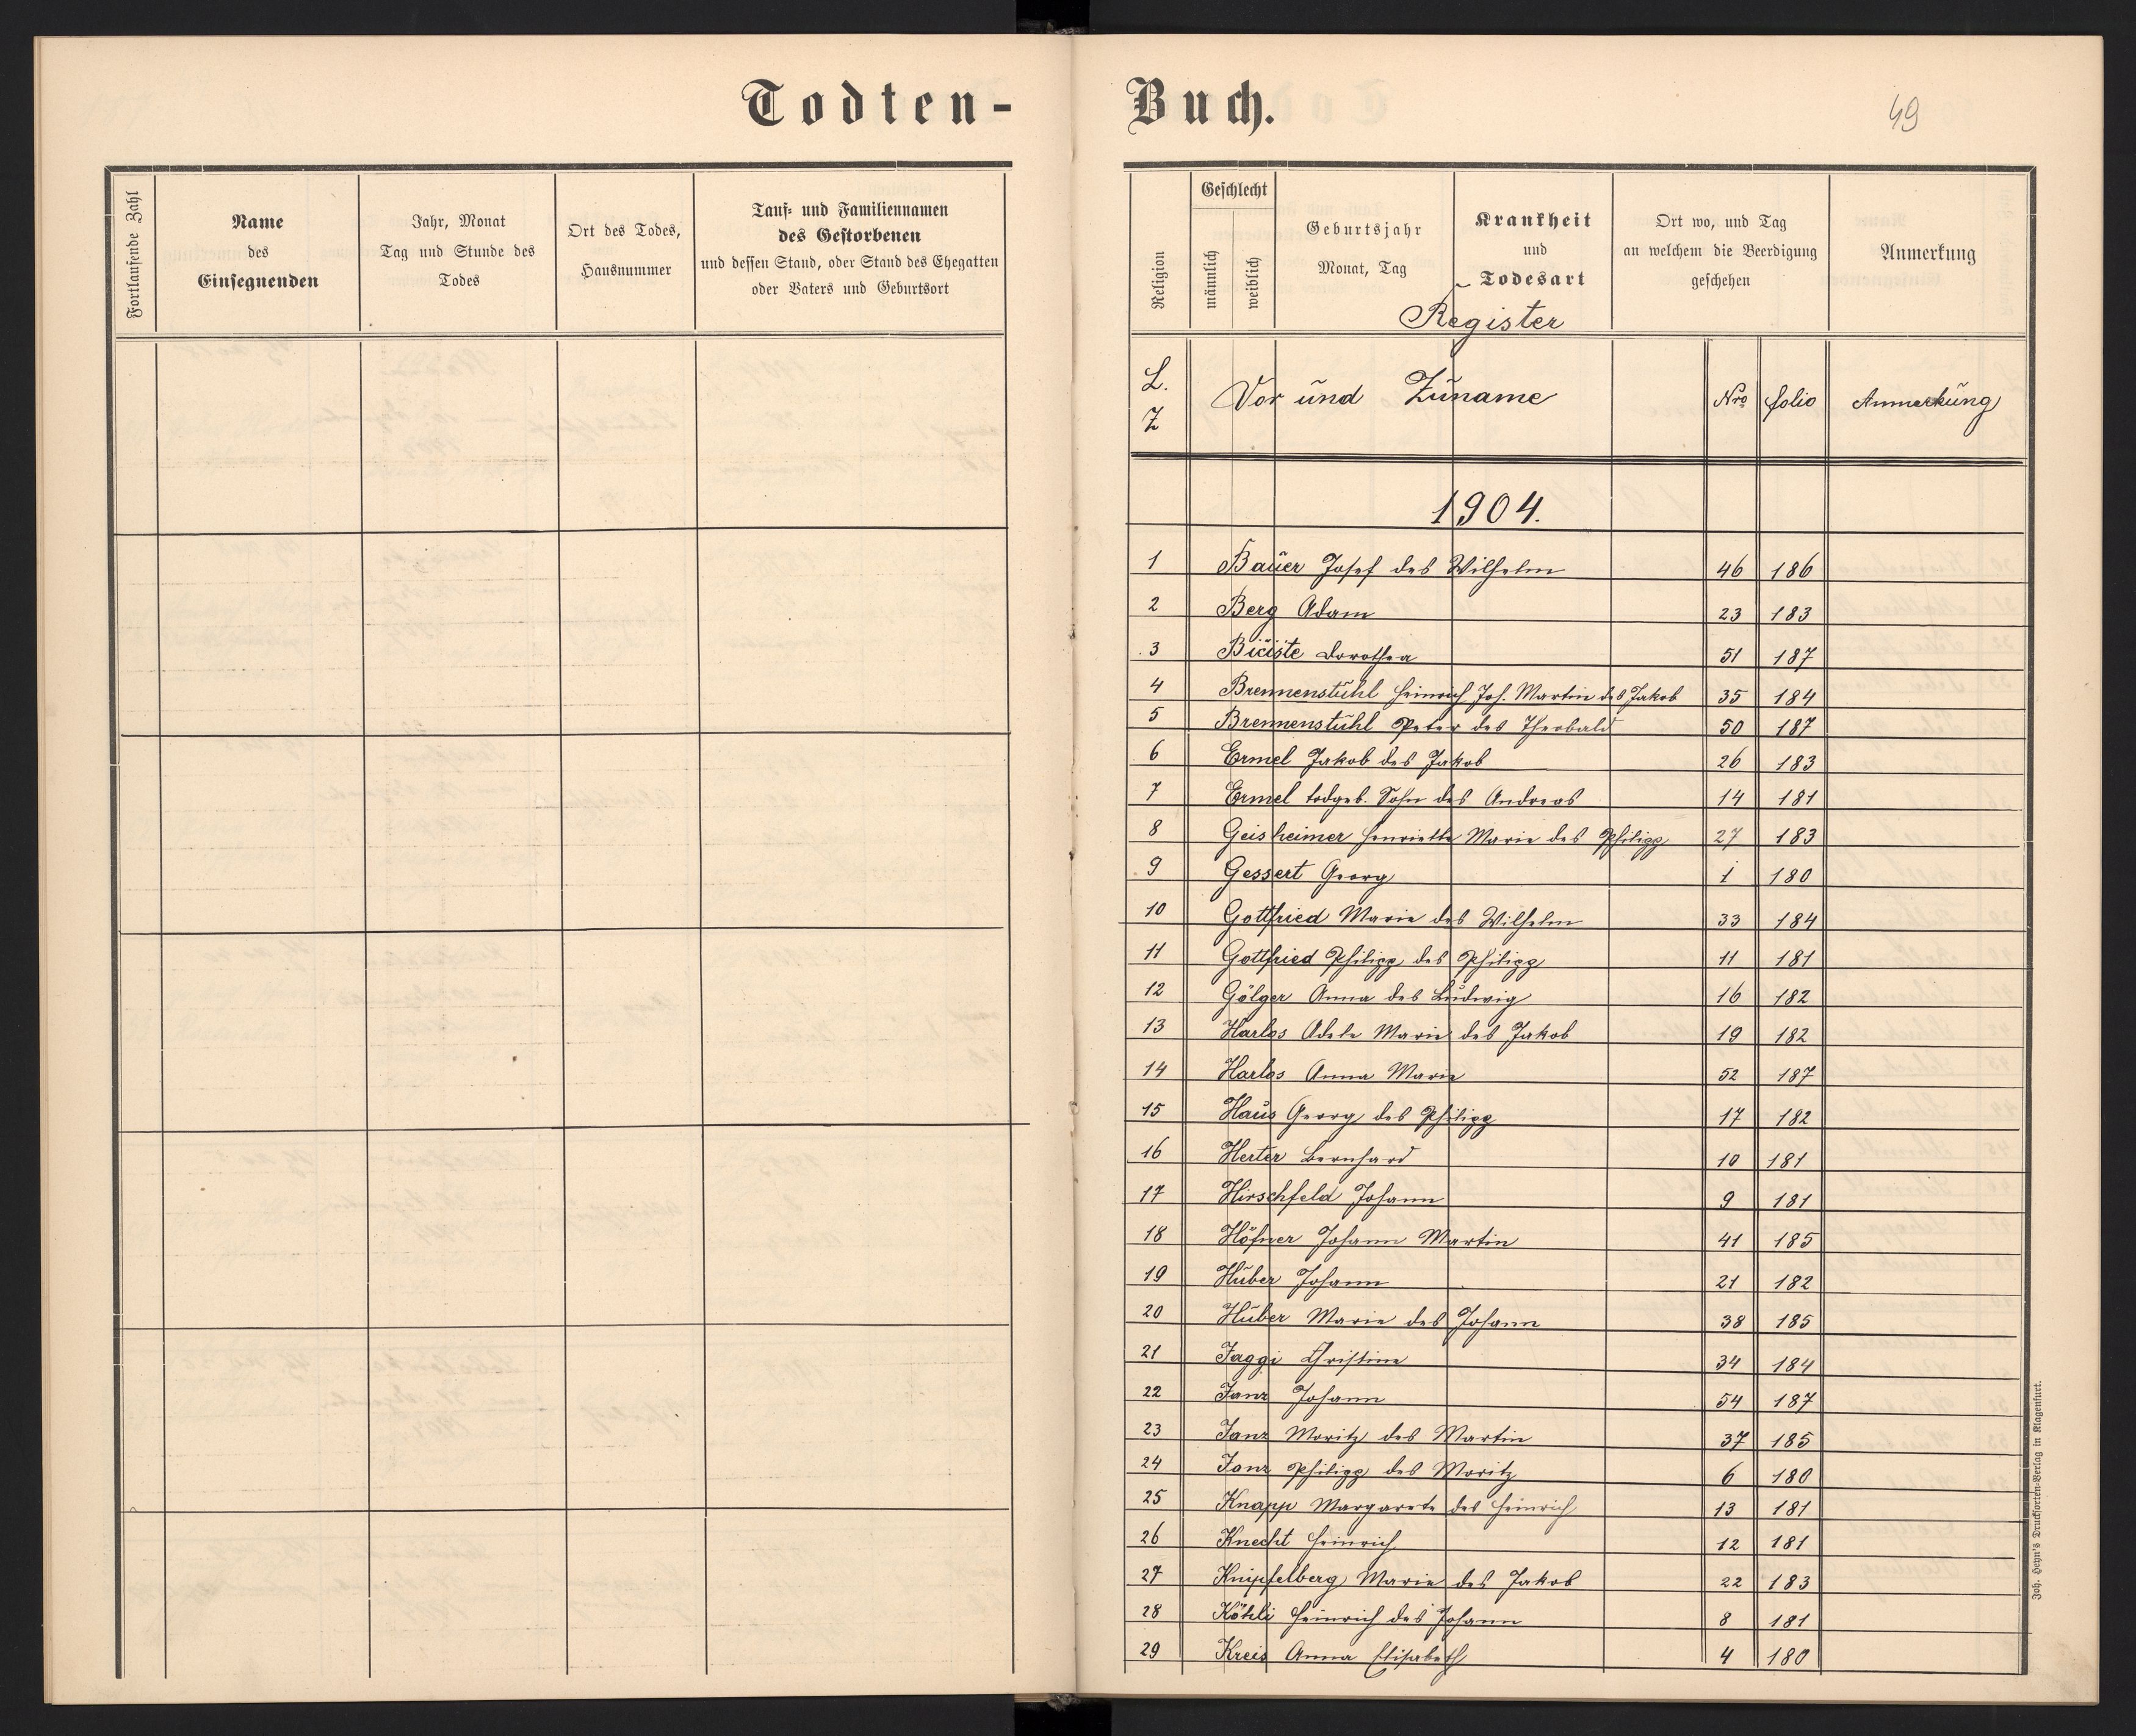 Todten-
Fortlaufende Zahl
Name
des
Einsegnenden
Jahr, Monat
Tag und Stunde des
Todes
Ort des Todes,
Hausnummer
Tauf- und Familiennamen
des Gestorbenen
und dessen Stand, oder Stand des Ehegatten
oder Vaters und Geburtsort
Buch.
49
Religion
Geschlecht
männlich
weiblich
Geburtsjahr
Monat, Tag
Krankheit
und
Todesart
Ort wo, und Tag
an welchem die Beerdigung
geschehen
Anmerkung
Register
L. Z Vor und Zuname Nro folio Anmerkung
1904.
1 Bauer Josef des Wilhelm 46 186
2 Berg Adam 23 183
3 Dorothea 51 187
4 Brennenstuhl Heinrich Joh. Martin des Jakob 35 184
5 Brennenstuhl Peter des Theobald 50 187
6 Ermel Jakob des Jakob 26 183
7 Ermel todgeb. Sohn des Andreas 14 181
8 Geisheimer Henriette Marie des Philipp 27 183
9 Gessert Georg 1 180
10 Gottfried Marie des Wilhelm 33 184
11 Gottfried Philipp des Philipp 11 181
12 Gölger Anna des Ludwig 16 182
13 Harlos Adele Marie des Jakob 19 182
14 Harlos Anna Marie 52 187
15 Haus Georg des Philipp 17 182
16 Herter Bernhard 10 181
17 Hirschfeld Johann 9 181
18 Höfner Johann Martin 41 185
19 Huber Johann 21 182
20 Huber Marie des Johann 38 185
21 Jaggi Christine 34 184
22 Janz Johann 54 187
23 Janz Moritz des Martin 37 185
24 Janz Philipp des Moritz 6 180
25 Knapp Margarete des Heinrich 13 181
26 Knecht Heinrich 12 181
27 Knipfelberg Marie des Jakob 22 183
28 Köhli Heinrich des Johann 8 181
29 Kreis Anna Elisabeth 4 180
Joh. Heyn's Drucksorten-Verlag in Klagenfurt.